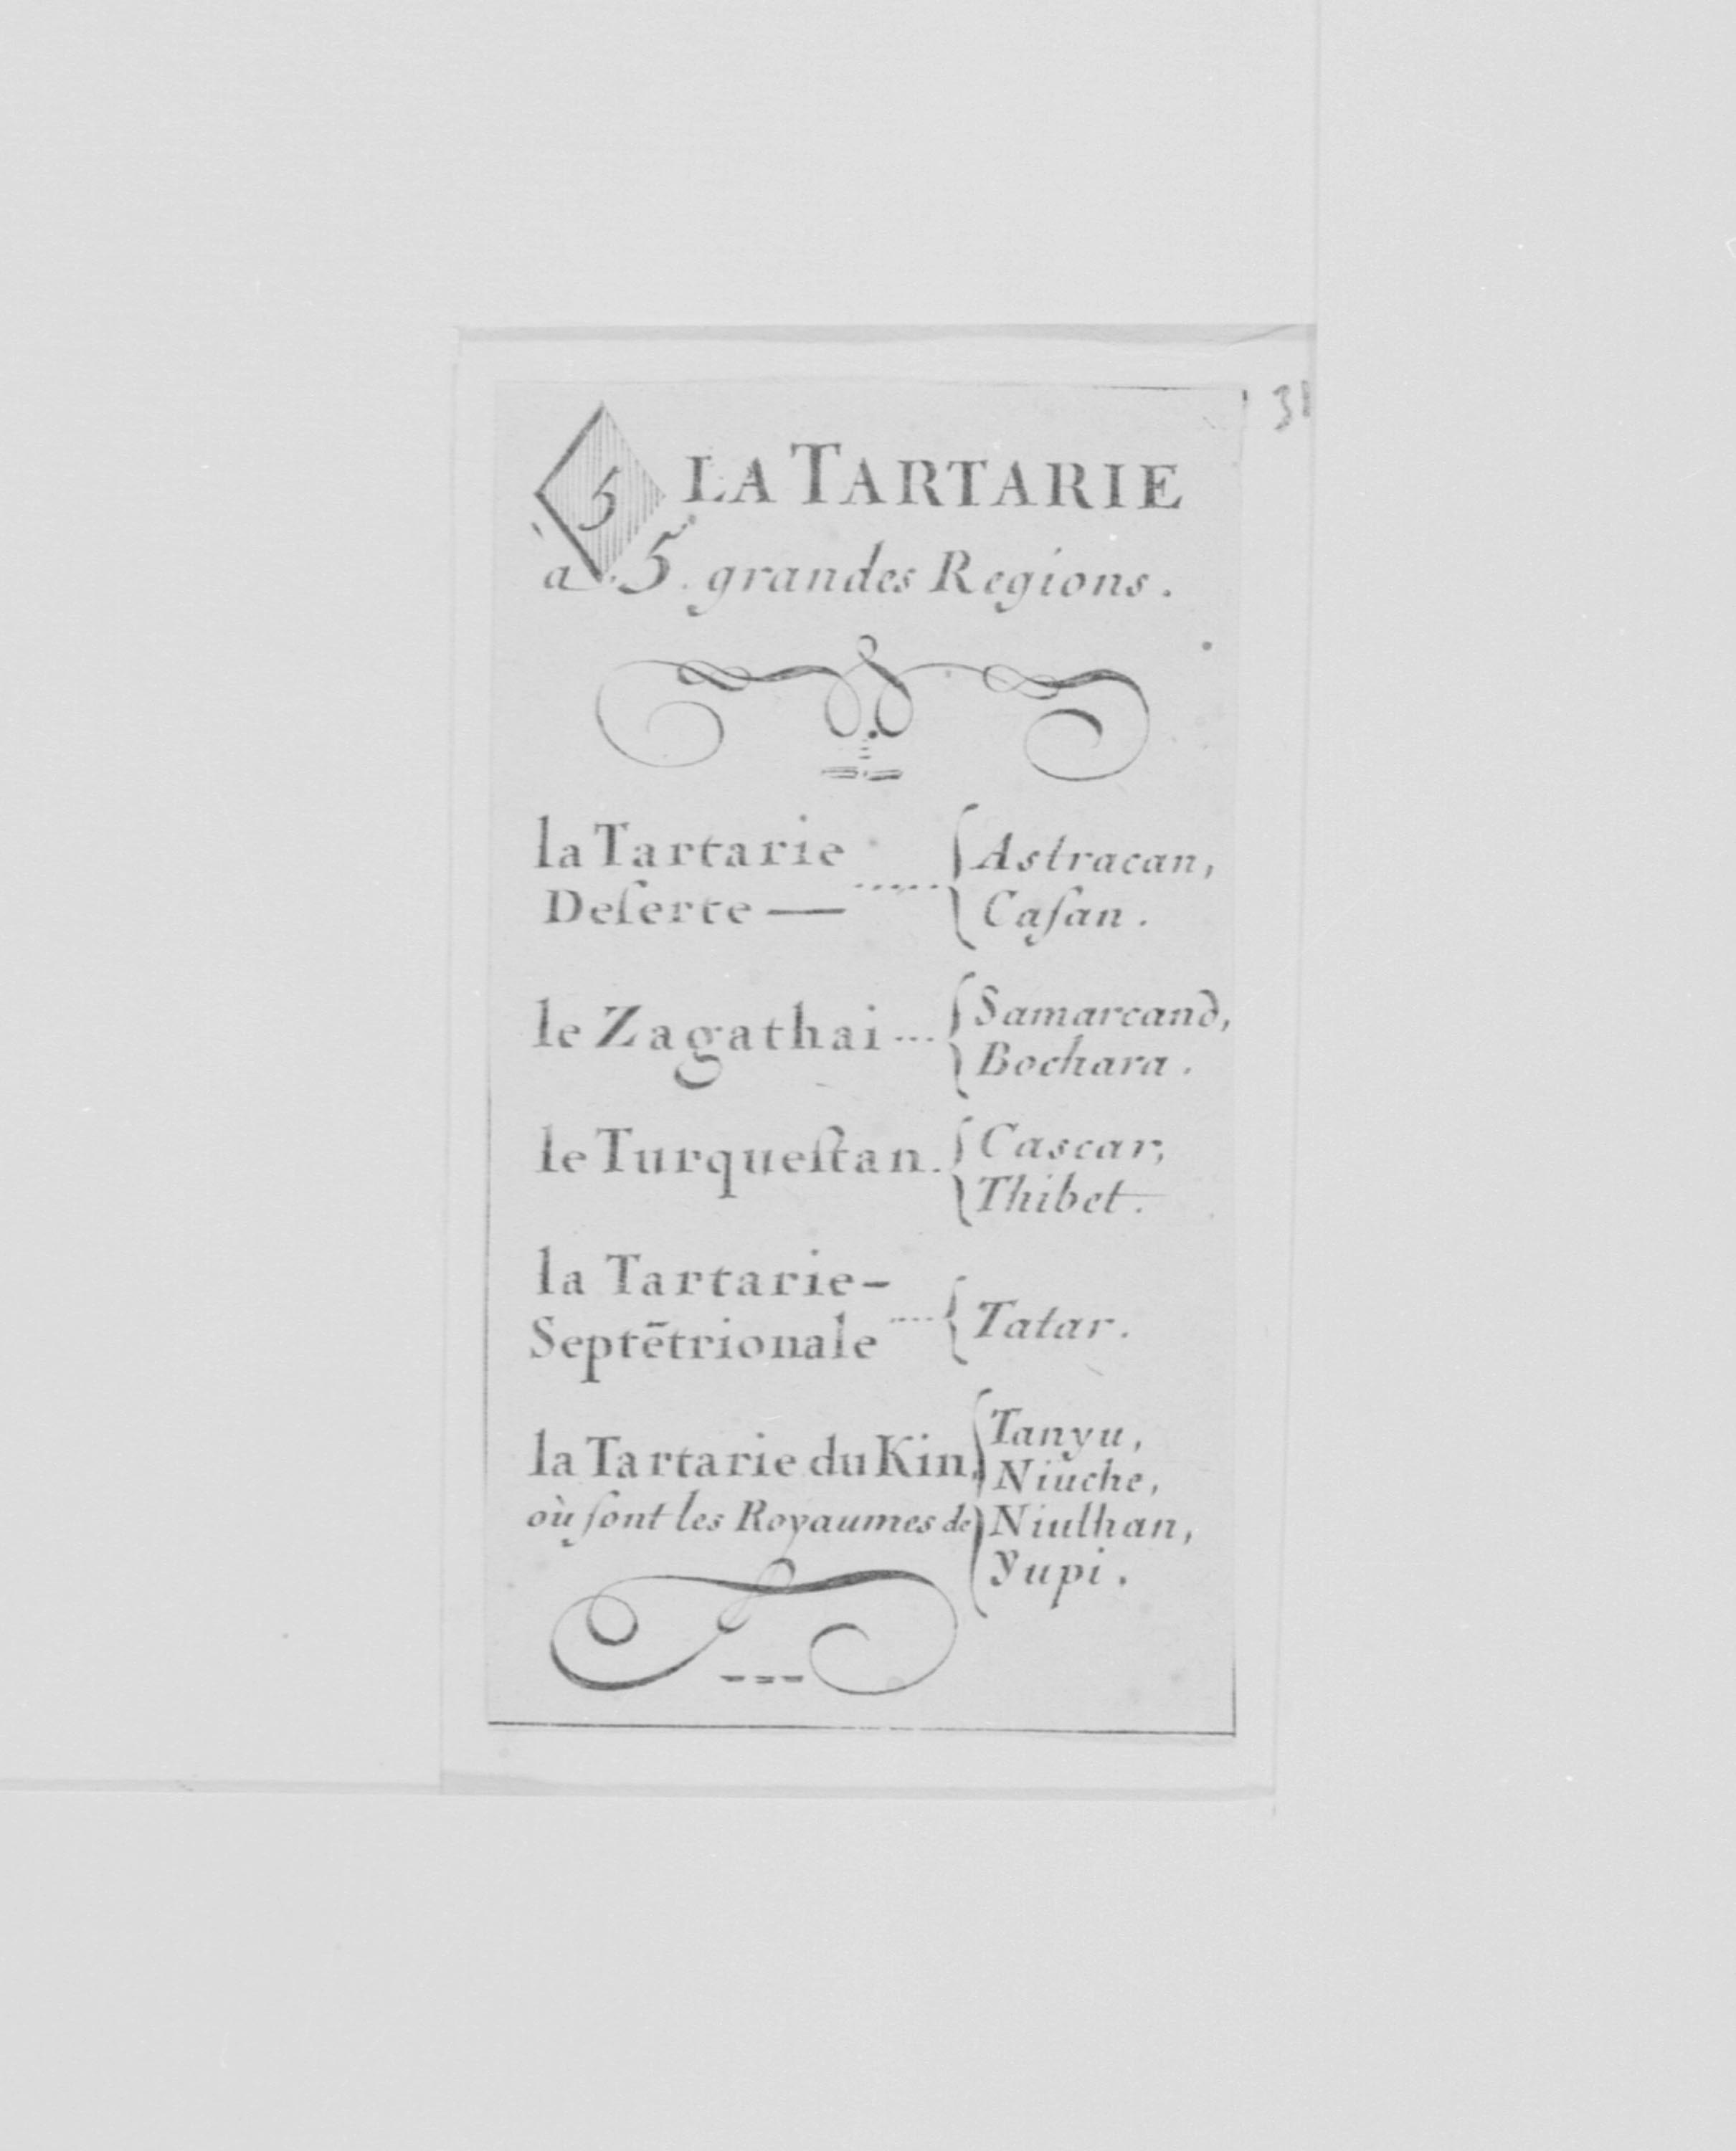 31
5 LA TARTARIE
a 5. grandes Regions.
la Tartarie
Deſerte —
Astracan,
Caſan.
le Zagathai
Samarcand,
Bochara.
le Turqueſtan.
Cascar,
Thibet.
la Tartarie-
Septētrionale
Tatar.
la Tartarie du Kin,
où ſont les Royaumes de
Tanyu,
Niuche,
Niulhan,
Yupi.